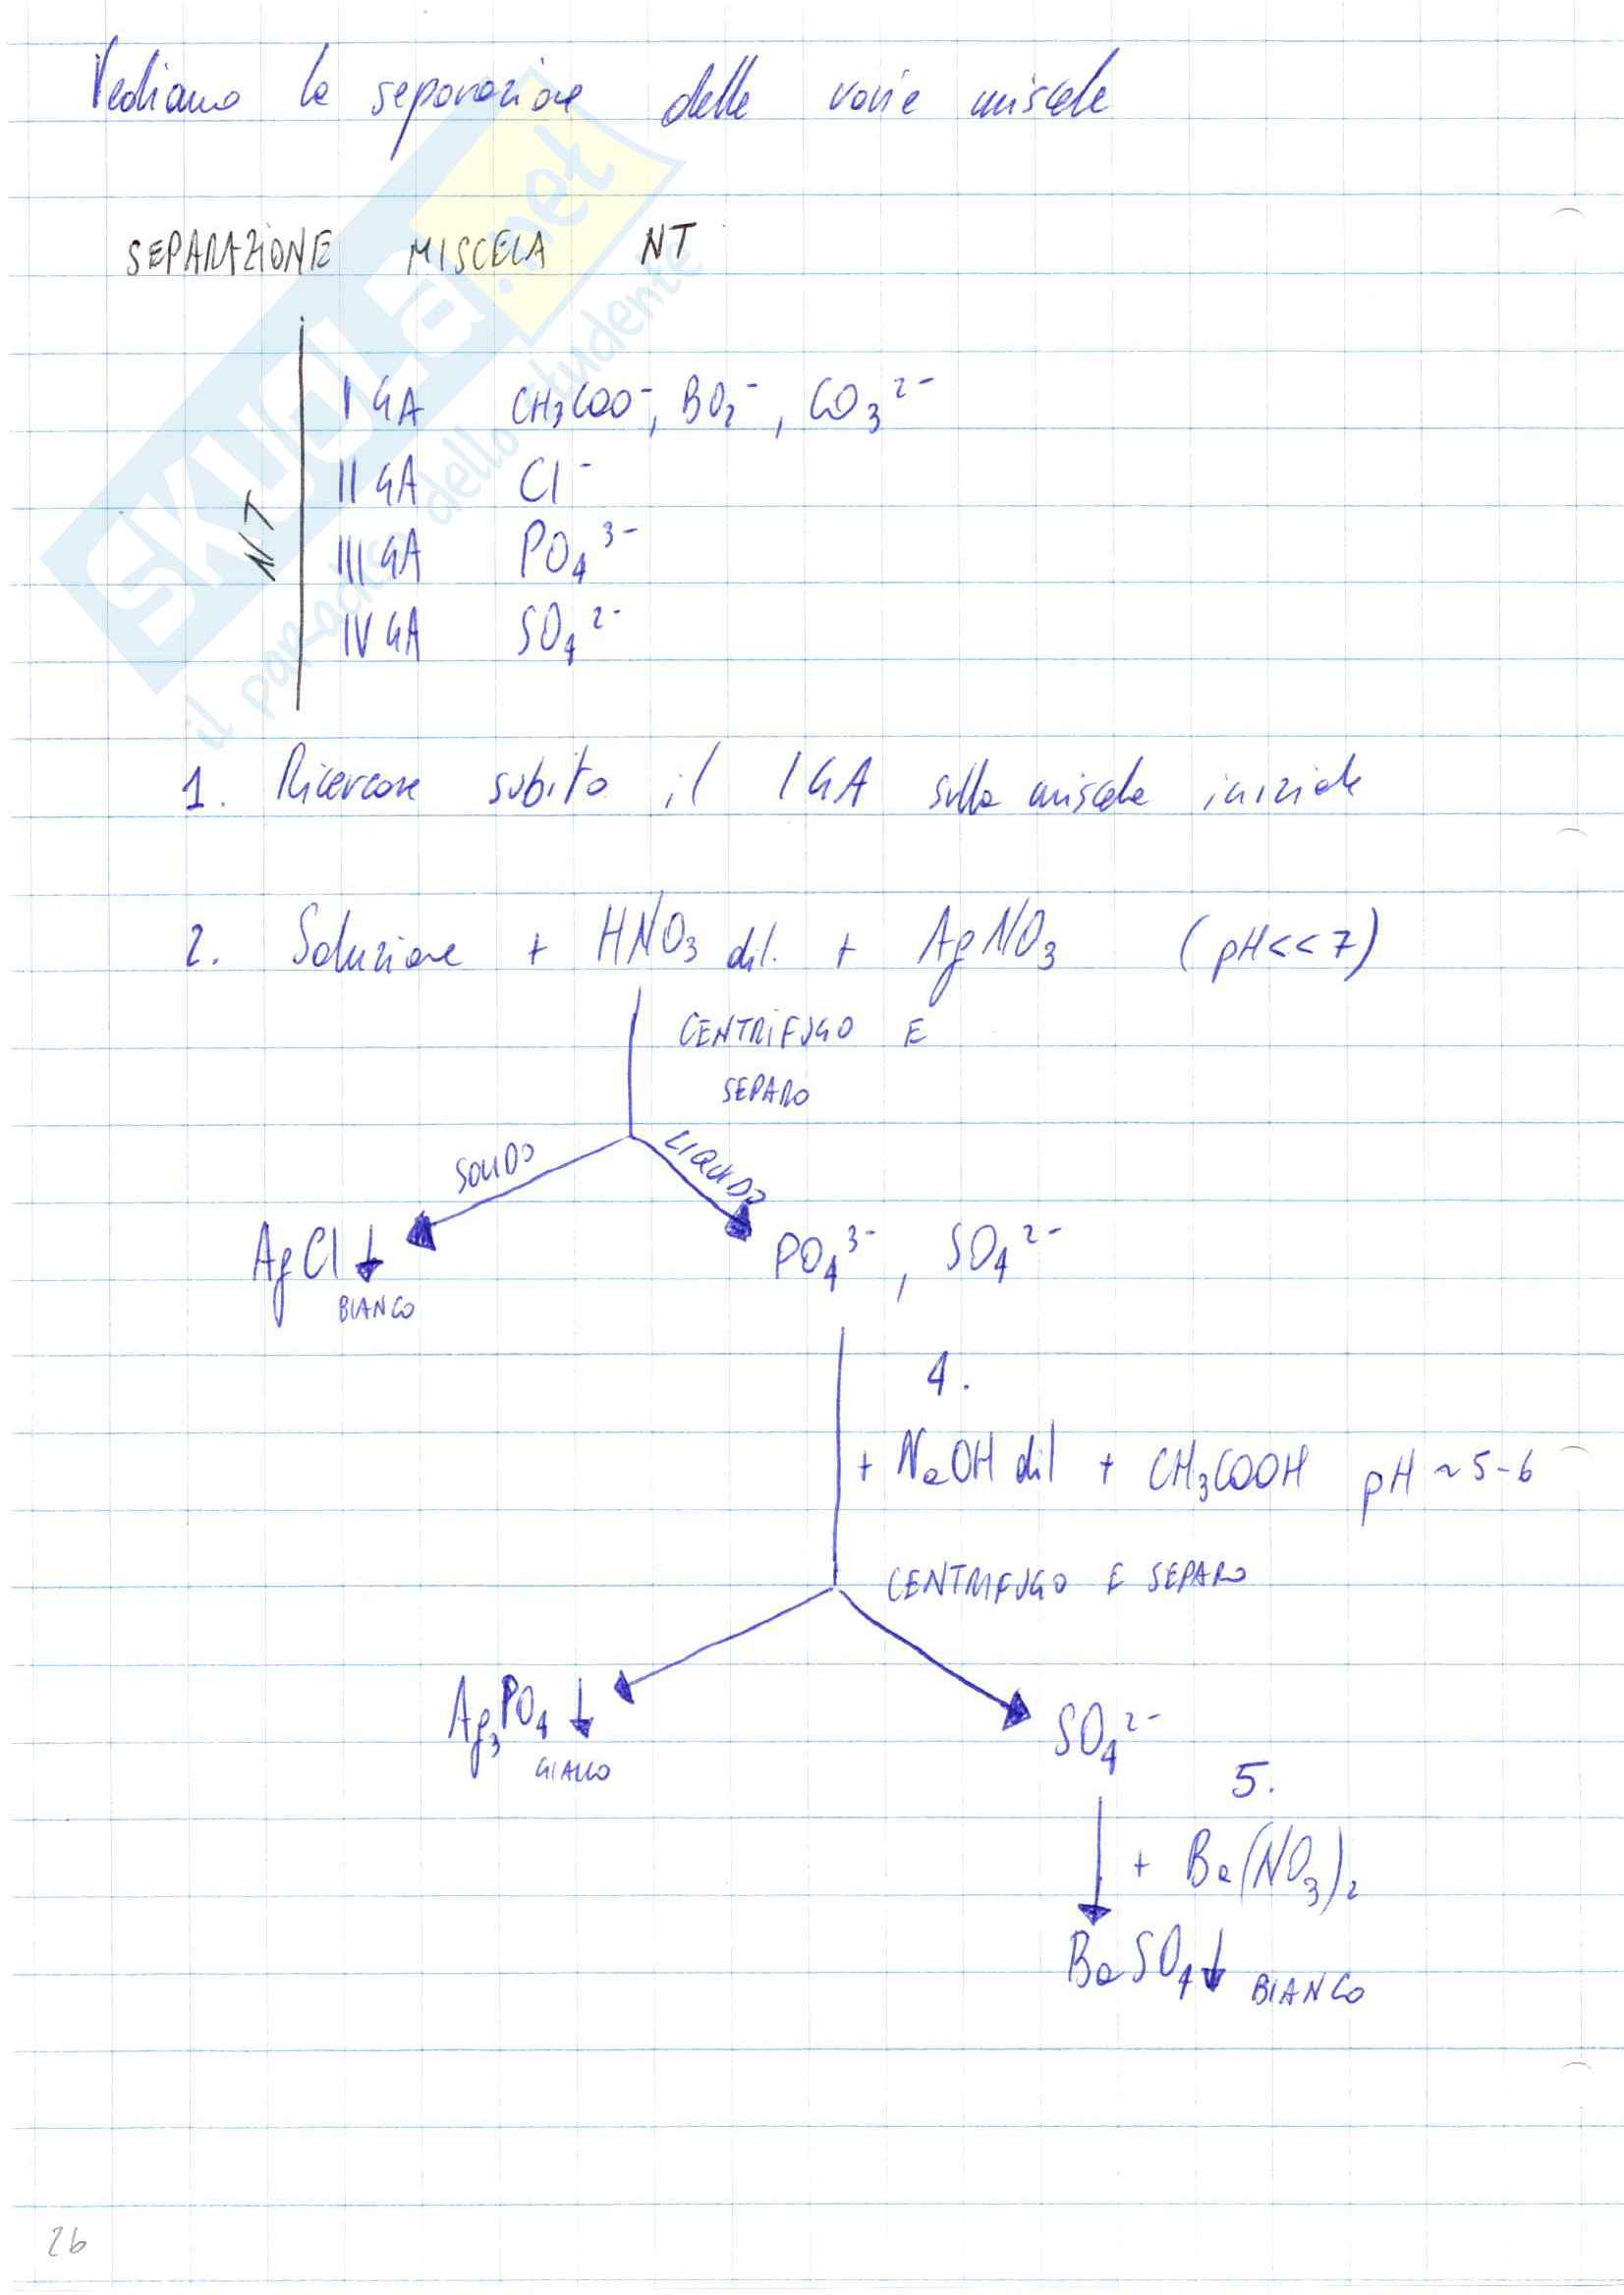 Vediamo la separazione delle varie miscele
SEPARAZIONE MISCELA NT
NT
I GA CH₃COO⁻, BO₂⁻, CO₃²⁻
II GA Cl⁻
III GA PO₄³⁻
IV GA SO₄²⁻
1. Ricercare subito il I GA sulla miscela iniziale
2. Soluzione + HNO₃ dil. + AgNO₃ (pH<<7)
CENTRIFUGO E
SEPARO
SOLIDO LIQUIDO
AgCl↓ PO₄³⁻, SO₄²⁻
BIANCO
4.
+ NaOH dil + CH₃COOH pH ~ 5-6
CENTRIFUGO E SEPARO
Ag₃PO₄↓ SO₄²⁻
GIALLO
5.
+ Ba(NO₃)₂
BaSO₄↓ BIANCO
26
SKUOLA.net
il paradiso dello studente